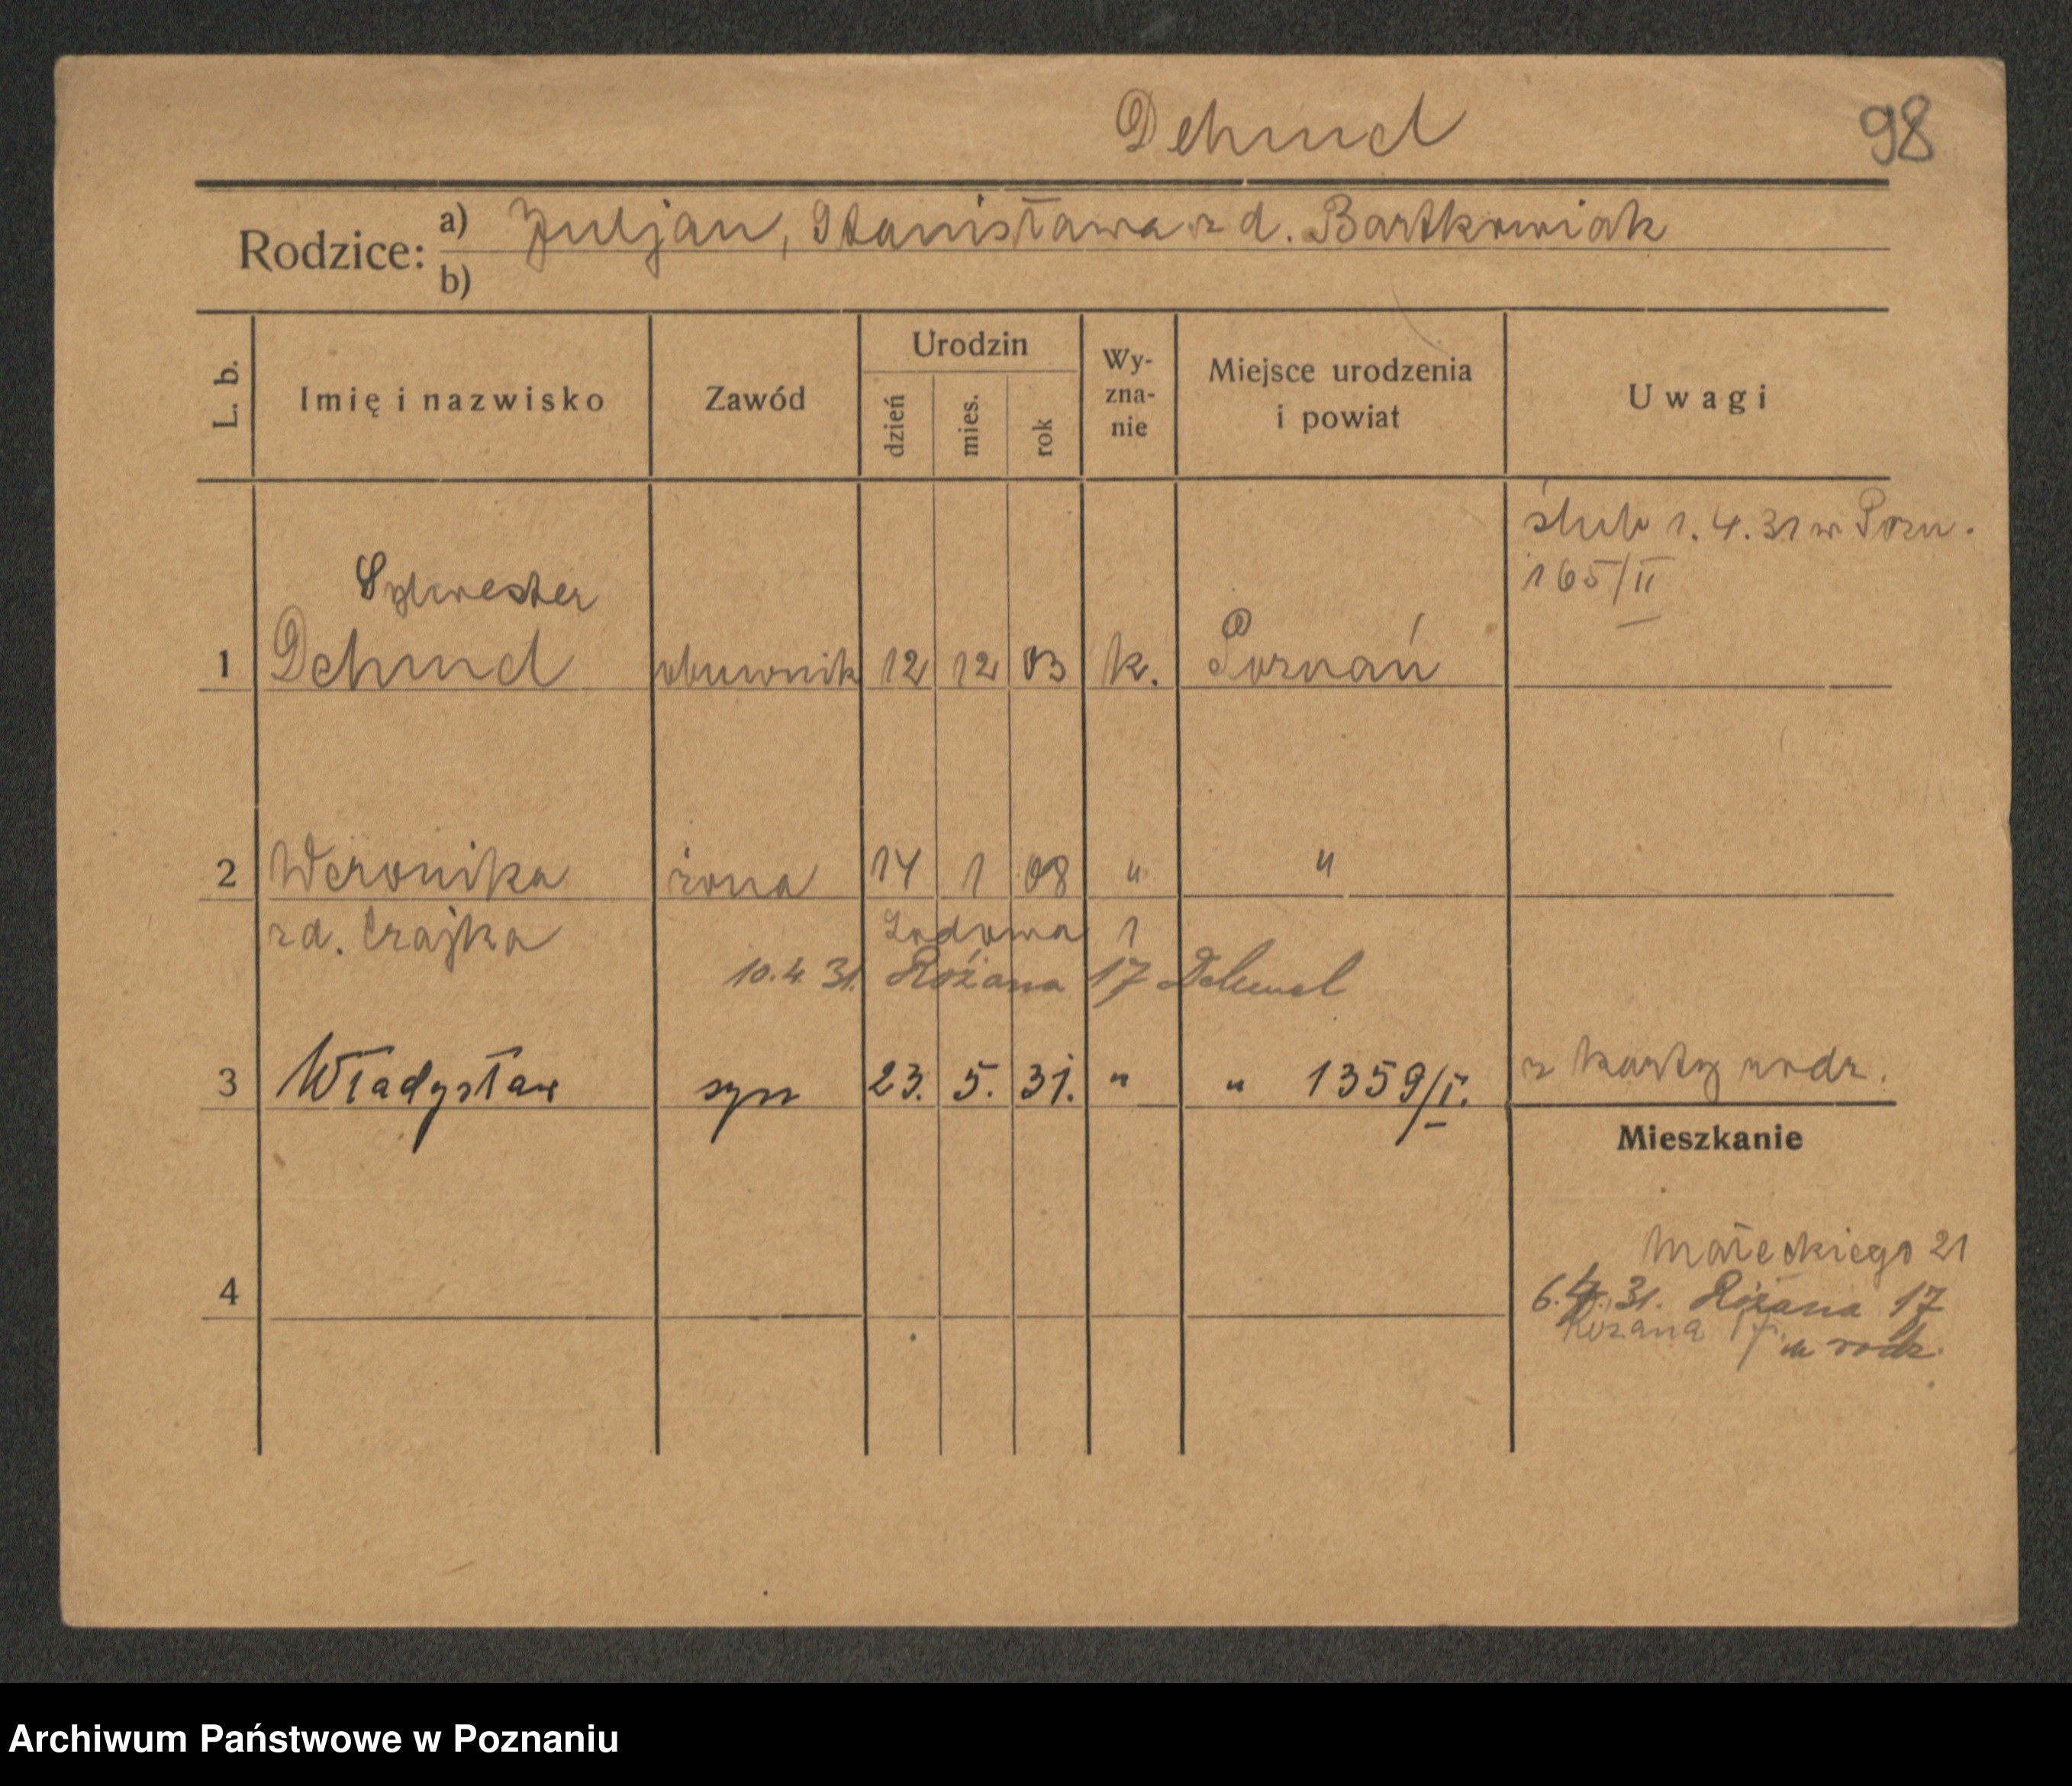 Dehmel 98
Rodzice: a) Juljan, Stanisława z d. Bartkowiak
b)
L. b. Imię i nazwisko Zawód Urodzin dzień mies. rok Wy-zna-nie Miejsce urodzenia i powiat Uwagi
ślub 1.4.31 w Pozn.
165/II
Sylwester
1 Dehmel obuwnik 12 12 03 k. Poznań
2 Weronika żona 14 1 08 " "
zd. Czajka Lodowa 1
10.4.31. Różana 17 Dehmel
3 Władysław syn 23. 5. 31. " " 1359/I. z karty rodz.
Mieszkanie
Małeckiego 21
4 6.4.31. Różana 17
Różana 17 u rodz.
Archiwum Państwowe w Poznaniu